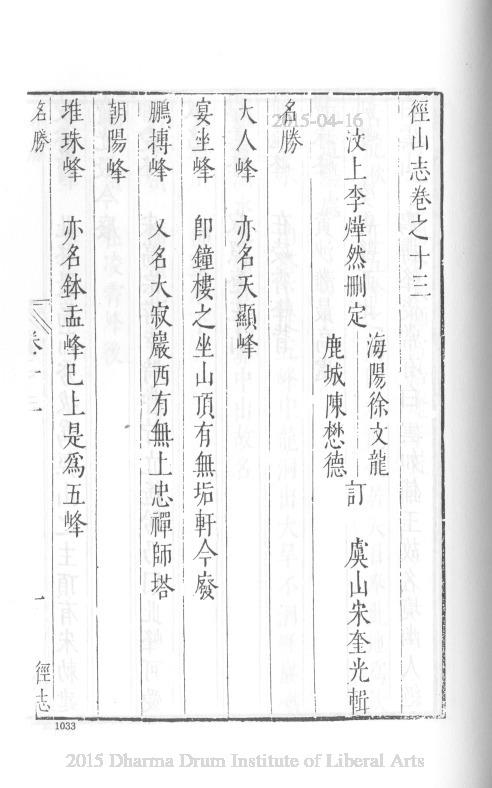 徑山志卷之十三
汶上李燁然刪定
海陽徐文龍
鹿城陳懋德
訂
虞山宋奎光輯
名勝
大人峰 亦名天顯峰
宴坐峰 卽鐘樓之坐山頂有無垢軒今廢
鵬搏峰 又名大寂巖西有無上忠禪師塔
朝陽峰
堆珠峰 亦名鉢盂峰巳上是爲五峰
名勝
卷十三
一
徑志
1033
2015-04-16
2015 Dharma Drum Institute of Liberal Arts